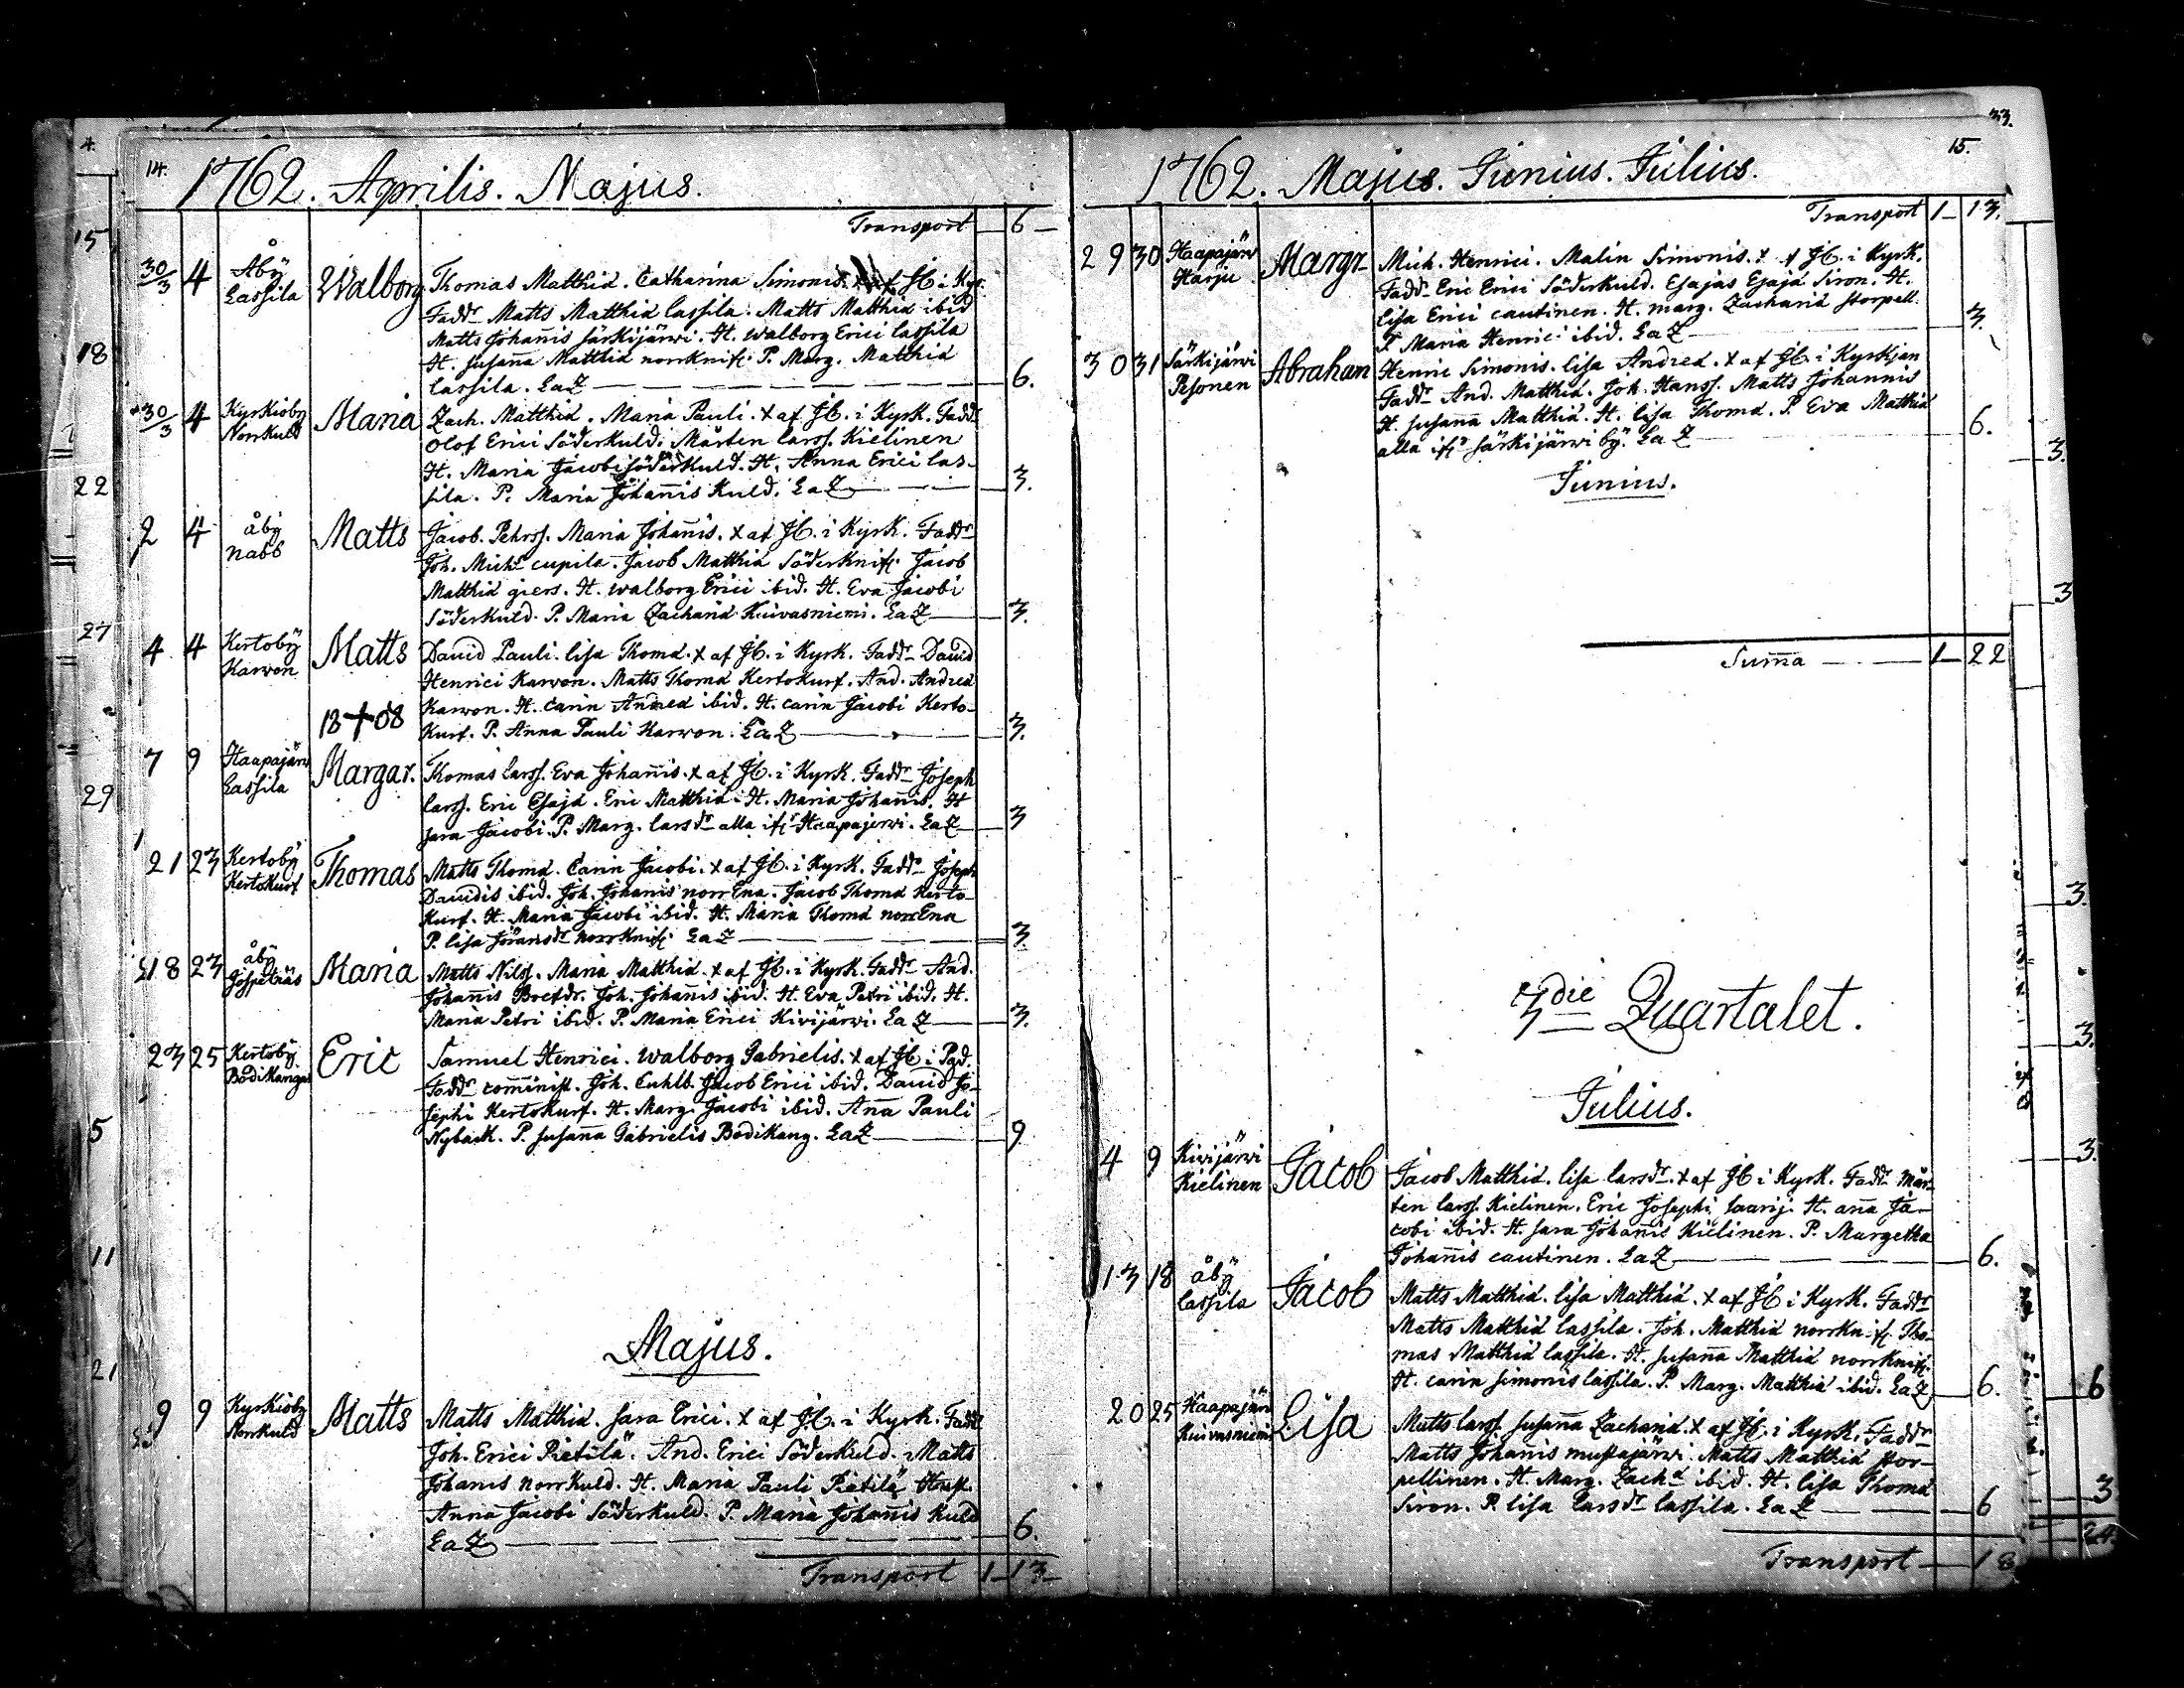 14.
1762. Aprilis. Majus.
Transport 6
30/3 4 Åbÿ Lassila Walborg Thomas Matthiæ. Catharina Simonis. x af JH. i Kyr.
Fadd.r Matts Matthiæ lassila. Matts Matthiæ ibid
Matts Johañis särkijärwi. H. Walborg Erici lassila
H. Susaña Matthiæ norrknif. P. Marg. Matthiæ
lassila. EaZ 6.
30/3 4 Kyrkioby Norrkuld Maria Zach. Matthiæ. Maria Pauli. x af JH. i Kyrk. Fadd.r
Olof Erici Söderkuld. Mårten larss. Kielinen
H. Maria Jacobi söderkuld. H. Anna Erici las-
sila. P. Maria Johañis Kuld. EaZ 3.
2 4 åbÿ nabb Matts Jacob. Pehrss. Maria Johañis. x af JH. i Kyrk. Fadd.r
Joh. Mich. cupila. Jacob Matthiæ Söderknif. Jacob
Matthiæ giers. H. walborg Erici ibid. H. Eva Jacobi
Söderkuld. P. Maria Zachariæ Kuivasniemi. EaZ 3.
4 4 Kertobÿ Karwon Matts David Pauli. lisa Thomæ. x af JH. i Kyrk. Fadd.r David
Henrici Karwon. Matts Thomæ Kertokurf. And. Andreæ
Karwon. H. Carin Andreæ ibid. H. carin Jacobi Kerto-
18+08
Kurf. P. Anna Pauli Karwon. EaZ 3.
7 9 Haapajärw Lassila Margar. Thomas larss. Eva Johañis. x af JH. i Kyrk. Fadd.r Joseph
larss. Eric Esajæ. Eric Matthiæ. H. Maria Johañis. H
sara Jacobi. P. Marg. larsd.r alla if.r Haapajerwi. EaZ 3
21 23 Kertobÿ Kertokurf Thomas Matts Thomæ. Carin Jacobi. x af JH. i Kyrk. Fadd.r Joseph
Davidis ibid. Joh. Johanis norrEna. Jacob Thomæ Kerto-
Kurf. H. Maria Jacobi ibid. H. Maria Thomæ norrEna
P. lisa Jöransd.r norrknif. EaZ 3.
18 23 åbÿ Jospeträs Maria Matts Nilss. Maria Matthiæ. x af JH. i Kyrk. Fadd.r And.
Johañis Joh. Johañis ibid. H. Eva Petri ibid. H.
Maria Petri ibid. P. Maria Erici Kivijärwi. EaZ 3.
23 25 Kertobÿ Bodikangas Eric Samuel Henrici. Walborg Gabrielis. x af JH i Pgd.
Fadd.r Joh. Cuhlb. Jacob Erici ibid. David Jo-
sephi Kertokurf. H. Marg. Jacobi ibid. Aña Pauli
Nybäck. P. Susaña Gabrielis Bodikang. EaZ 9
Majus.
9 9 Kyrkioby Norrkuld Matts Matts Matthiæ. sara Erici. x af JH. i Kyrk. Fadd.r
Joh. Erici Pietilä. And. Erici Söderkuld. Matts
Johanis norrkuld. H. Maria Pauli Pietilä
Anna Jacobi Söderkuld. P. Maria Johañis Kuld
EaZ 6.
Transport 1 13
33.
15.
1762. Majus. Junius. Julius.
Transport 1 13.
29 30 Haapajärw Harju Margr. Mich. Henrici. Malin Simonis. x af JH. i Kyrk.
Fadd.r Eric Erici Söderkuld. Esajas Esajæ Siron. H.
lisa Erici cautinen. H. marg. Zachariæ storpell.
P. Maria Henrici ibid. EaZ 3.
30 31 Särkijärwi Pesonen Abraham Henric Simonis. lisa Andreæ. x af JH. i Kyrkjan
Fadd.r And. Matthiæ. Joh. Hanss. Matts Johannis
H. susaña Matthiæ. H. lisa Thomæ. P. Eva Matthiæ
alla if.r särkijärwi bÿ. EaZ 6.
Junius.
Suma 1 22
3die Quartalet.
Julius.
4 9 Kivijärwi Kielinen Jacob Jacob Matthiæ. lisa larsd.r. x af JH i Kyrk. Fadd.r Mår-
ten larss. Kielinen. Eric Josephi saarij. H. aña Ja-
cobi ibid. H. sara Johañis Kielinen. P. Margetha
Johañis cautinen. EaZ 6.
13 18 åbÿ lassila Jacob Matts Matthiæ. lisa Matthiæ. x af JH i Kyrk. Fadd.r
Matts Matthiæ lassila. Joh. Matthiæ norrknif. Tho-
mas Matthiæ lassila. H. susaña Matthiæ norrknif.
H. carin simonis lassila. P. Marg. Matthiæ ibid. EaZ 6.
20 25 Haapajärw Kuivasniemi Lisa Matts larss. Susaña Zachariæ. x af JH. i Kyrk. Fadd.r
Matts Johañis mustajärwi. Matts Matthiæ stor-
pellinen. H. Marg. Zach.æ ibid. H. lisa Thomæ
Siron. P. lisa larsd.r lassila. EaZ 6
Transport 18